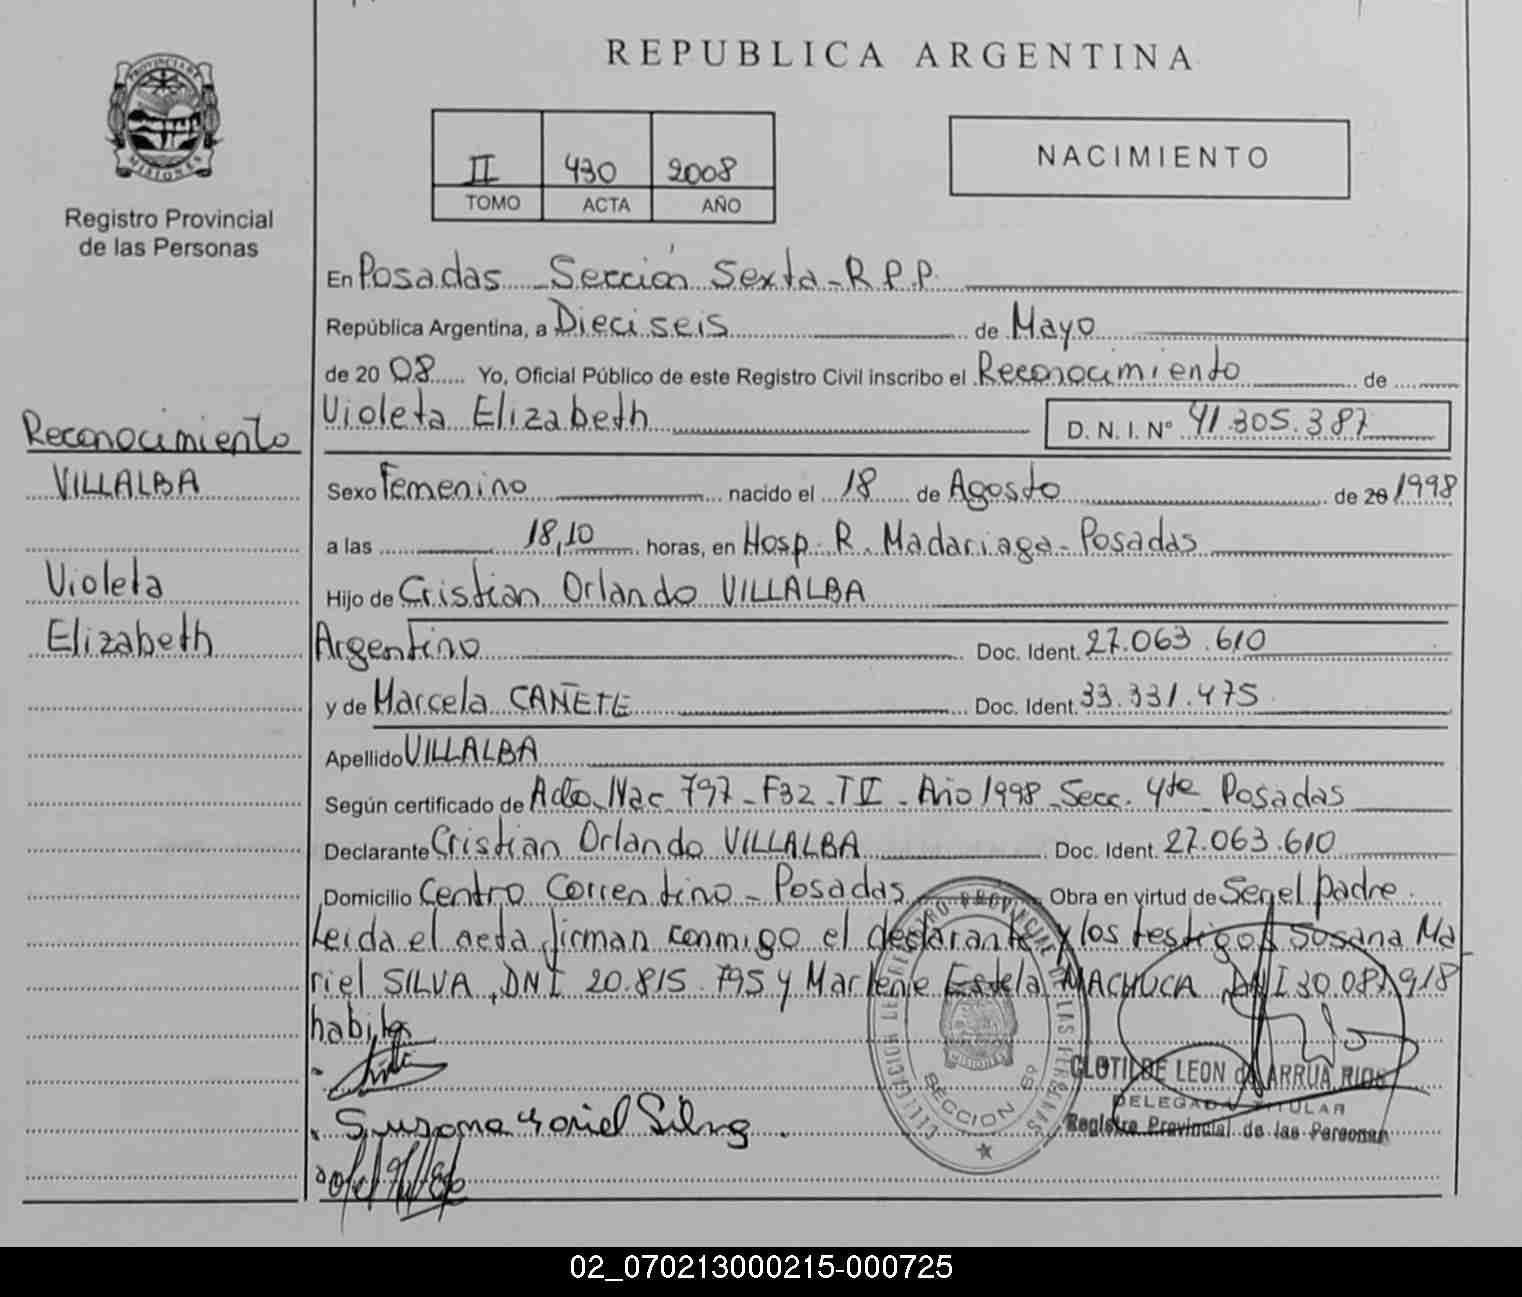 REPUBLICA ARGENTINA
PROVINCIA DE
MISIONES
Registro Provincial
de las Personas
II 430 2008
TOMO ACTA AÑO
NACIMIENTO
En Posadas Sección Sexta - R.P.P.
República Argentina, a Dieciseis de Mayo
de 20 08 Yo, Oficial Público de este Registro Civil inscribo el Reconocimiento de
Violeta Elizabeth D. N. I. N° 41.305.387
Reconocimiento
VILLALBA
Violeta
Elizabeth
Sexo Femenino nacido el 18 de Agosto de 20 1998
a las 18,10 horas, en Hosp. R. Madariaga - Posadas
Hijo de Cristian Orlando VILLALBA
Argentino Doc. Ident. 27.063.610
y de Marcela CAÑETE Doc. Ident. 33.331.475
Apellido VILLALBA
Según certificado de Acta Nac 797 - F32 - T - Año 1998 - Secc. 4ta Posadas
Declarante Cristian Orlando VILLALBA Doc. Ident. 27.063.610
Domicilio Centro Correntino - Posadas Obra en virtud de Ser el padre.
Leida el acta firman conmigo el declarante y los testigos Susana Ma
riel SILVA, DNI 20.815.795 y Marlene Estela MACHUCA DNI 30.081.918
habiles
REGISTRO PROVINCIAL DE LAS PERSONAS
SECCION 6º
CLOTILDE LEON de ARRUA RIOS
DELEGADA TITULAR
Registro Provincial de las Personas
Susana Mariel Silva
02_070213000215-000725